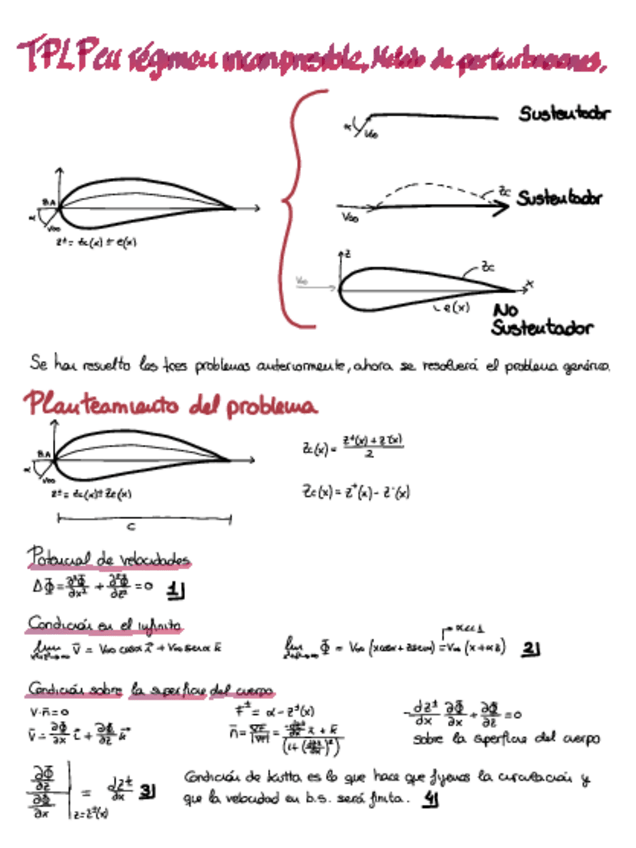 TPLP en régimen incompresible. Método de perturbaciones.
Sustentador
α V∞
BA
Zc
Sustentador
α V∞
V∞
z± = zc(x) ± e(x)
z
Zc
V∞
x
e(x)
No
Sustentador
Se han resuelto los tres problemas anteriormente, ahora se resolverá el problema genérico.
Planteamiento del problema
BA
Zc(x) = z⁺(x) + z⁻(x) / 2
α V∞
z± = zc(x) ± Ze(x)
Ze(x) = z⁺(x) - z⁻(x)
c
Potencial de velocidades
ΔΦ = ∂²Φ/∂x² + ∂²Φ/∂z² = 0 1)
Condición en el infinito
α<<1
lim x²+z²→∞ v = V∞ cosα i + V∞ senα k
lim x²+z²→∞ Φ = V∞ (x cosα + z senα) = V∞ (x + αz) 2)
Condición sobre la superficie del cuerpo
v·n = 0
F± = α - z±(x)
-dz±/dx ∂Φ/∂x + ∂Φ/∂z = 0
v = ∂Φ/∂x i + ∂Φ/∂z k
n = ∇F/|∇F| = -dz±/dx i + k / (1 + (dz±/dx)²)
sobre la superficie del cuerpo
∂Φ/∂z / ∂Φ/∂x | z=z±(x) = dz±/dx 3)
Condición de kutta es lo que hace que fijemos la circulación y
que la velocidad en b.s. será finita. 4)